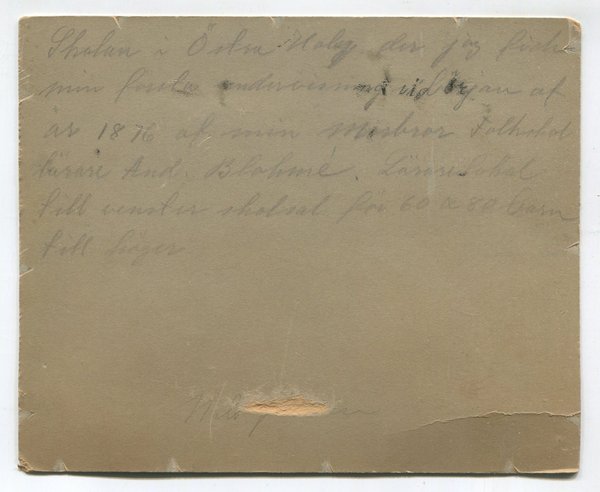 Skolan i Östra Hoby der jag fick
min första undervisning i början af
år 1876 af min Morbror Folkskol
lärare And. Blohmé. Lärarelokal
till venster skolsal för 60 a 80 barn
till höger